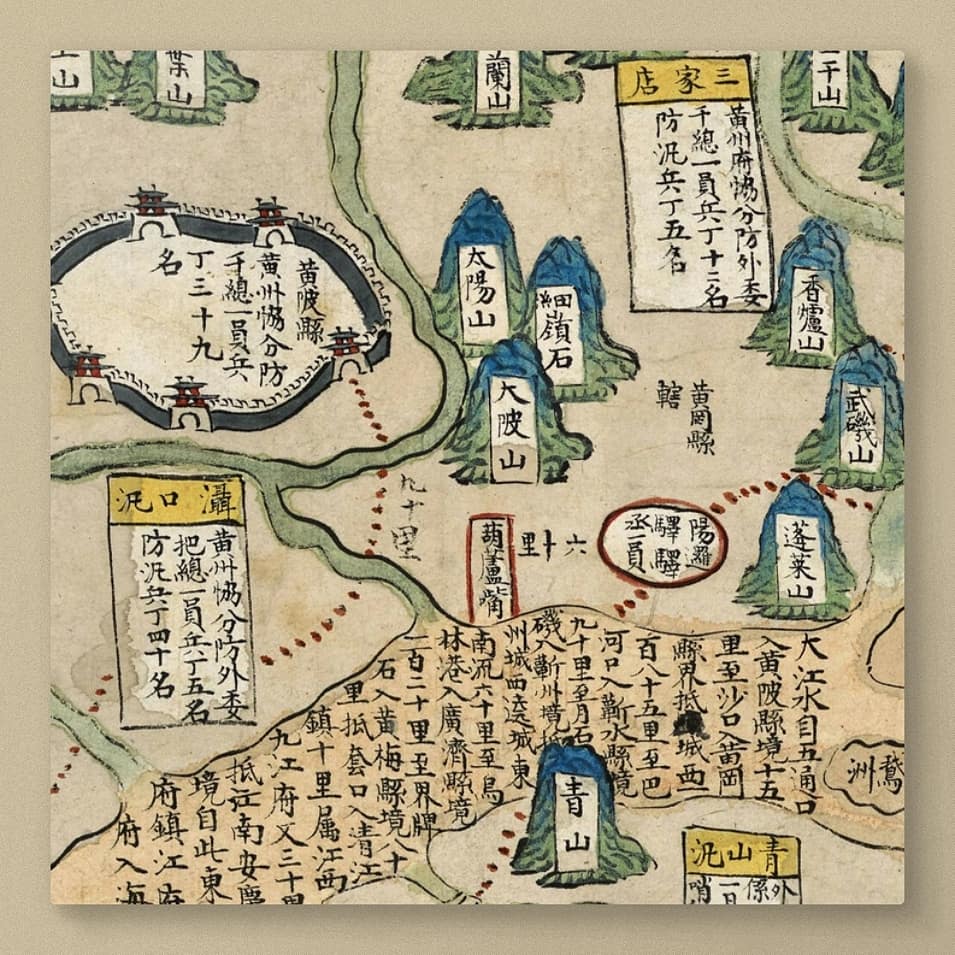 山
葉山
蘭山
三家店
黃州府協分防外委
千總一員兵丁十二名
防汛兵丁五名
黃陂縣
黃州協分防
千總一員兵
丁三十九
名
太陽山
細嶺石
大陂山
香爐山
武磯山
黃岡縣
轄
蓬萊山
陽邏
驛驛
丞一員
六十里
葫蘆嘴
九十里
灄口汛
黃州協分防外委
把總一員兵丁五名
防汛兵丁四十名
大江水自五通口
入黃陂縣境十五
里至沙口入黃岡
縣界抵城西
百八十五里至巴
河口入蘄水縣境
九十里至月石
磯入蘄州境抵
州城西遶城東
南流六十里至烏
林港入廣濟縣境
一百二十里至界牌
石入黃梅縣境八十
里抵套口入清江
鎮十里属江西
九江府又三十里
抵江南安慶
境自此東
府鎮江府
府入海
鵝洲
青山
青山汛
外係
哨